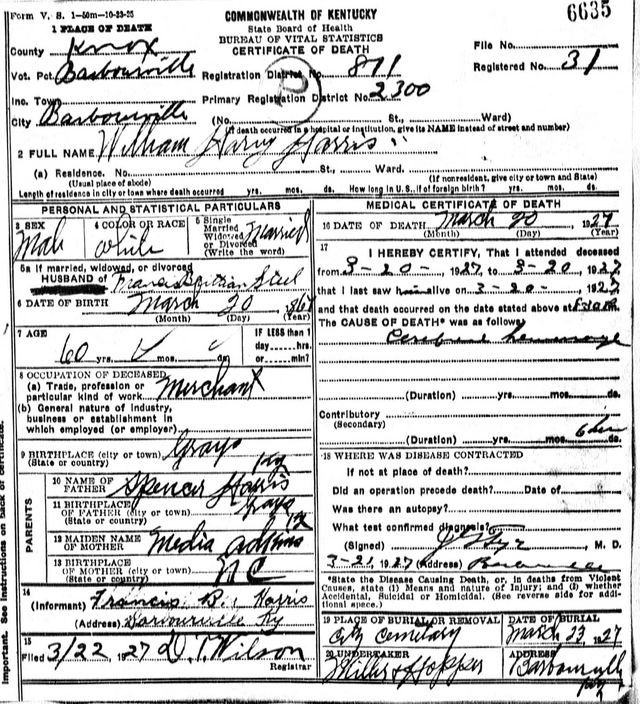 Form V. S. 1-50m-10-23-25
COMMONWEALTH OF KENTUCKY
State Board of Health
BUREAU OF VITAL STATISTICS
CERTIFICATE OF DEATH
6635
1 PLACE OF DEATH
County Knox
File No.
Vot. Pct. Barbourville Registration District No. 871
Registered No. 31
Inc. Town Primary Registration District No. 2300
City Barbourville (No. St., Ward)
(If death occurred in a hospital or institution, give its NAME instead of street and number)
2 FULL NAME William Harvy Harris
(a) Residence. No. St., Ward.
(Usual place of abode) (If nonresident, give city or town and State)
Length of residence in city or town where death occurred yrs. mos. ds. How long in U. S., if of foreign birth? yrs. mos. ds.
PERSONAL AND STATISTICAL PARTICULARS
3 SEX Male
4 COLOR OR RACE White
5 Single Married Widowed or Divorced (Write the word) Married
5a If married, widowed, or divorced
HUSBAND of Steel
6 DATE OF BIRTH March 20 1867
(Month) (Day) (Year)
7 AGE 60 yrs. mos. ds.
IF LESS than 1 day hrs. or min.?
8 OCCUPATION OF DECEASED
(a) Trade, profession or particular kind of work Merchant
(b) General nature of industry, business or establishment in which employed (or employer)
9 BIRTHPLACE (city or town) Grays
(State or country) Ky
PARENTS
10 NAME OF FATHER Spencer Harris
11 BIRTHPLACE OF FATHER (city or town) Grays
(State or country)
12 MAIDEN NAME OF MOTHER Media Adkins
13 BIRTHPLACE OF MOTHER (city or town) NC
(State or country)
14 (Informant) Francis B. Harris
(Address) Barbourville Ky
15 Filed 3/22, 1927 D. T. Wilson
Registrar
MEDICAL CERTIFICATE OF DEATH
16 DATE OF DEATH March 20 1927
(Month) (Day) (Year)
17 I HEREBY CERTIFY, That I attended deceased
from 3-20-, 1927, to 3-20-, 1927
that I last saw him alive on 3-20-, 1927
and that death occurred on the date stated above at
The CAUSE OF DEATH* was as follows:
Cerebral hemorrage
(Duration) yrs. mos. ds.
Contributory
(Secondary)
(Duration) yrs. mos. ds.
18 WHERE WAS DISEASE CONTRACTED
If not at place of death?
Did an operation precede death? Date of
Was there an autopsy?
What test confirmed diagnosis?
(Signed) M. D.
3-21, 1927 (Address)
*State the Disease Causing Death, or, in deaths from Violent Causes, state (1) Means and nature of Injury; and (2) whether Accidental, Suicidal or Homicidal. (See reverse side for additional space.)
19 PLACE OF BURIAL OR REMOVAL City Cemetary
DATE OF BURIAL March 23, 1927
20 UNDERTAKER Hopper
ADDRESS Barbourville Ky
Important. See instructions on back of certificate.